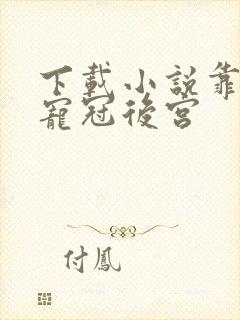 下載小說靠
寵冠後宮
付鳳